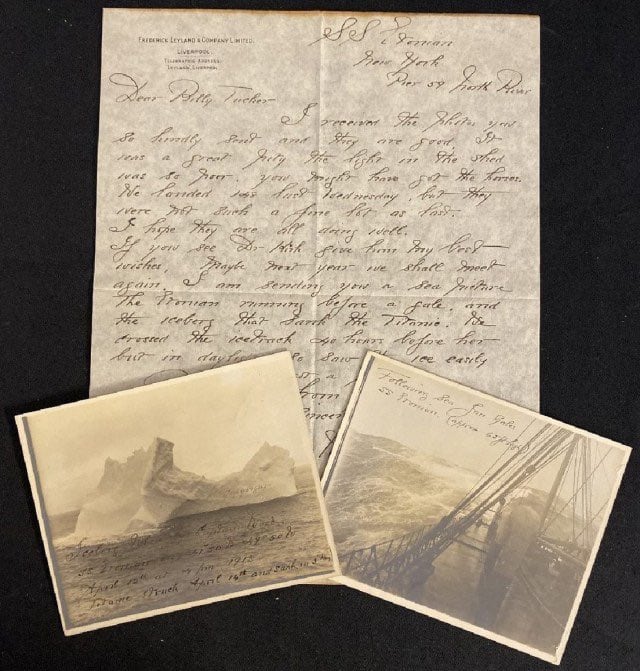 FREDERICK LEYLAND & COMPANY LIMITED.
LIVERPOOL.
TELEGRAPHIC ADDRESS:
LEYLAND, LIVERPOOL.
SS Etonian
New York
Pier 59 North River
Dear Billy Tucker
I received the photos you
so kindly sent and they are good. It
was a great pity the light in the shed
was so poor, you might have got the horses.
We landed last Wednesday, but they
were not such a fine lot as last.
I hope they are all doing well.
If you see Dr give him my best
wishes, Maybe next year we shall meet
again. I am sending you a sea picture
The Etonian running before a gale, and
the iceberg that sank the Titanic. We
crossed the icetrack 40 hours before her
but in daylight so saw the ice easily
from
Iceberg
SS Etonian
April 12th at 4 pm
Titanic struck April 14th and sank in
Following Sea
SS Etonian